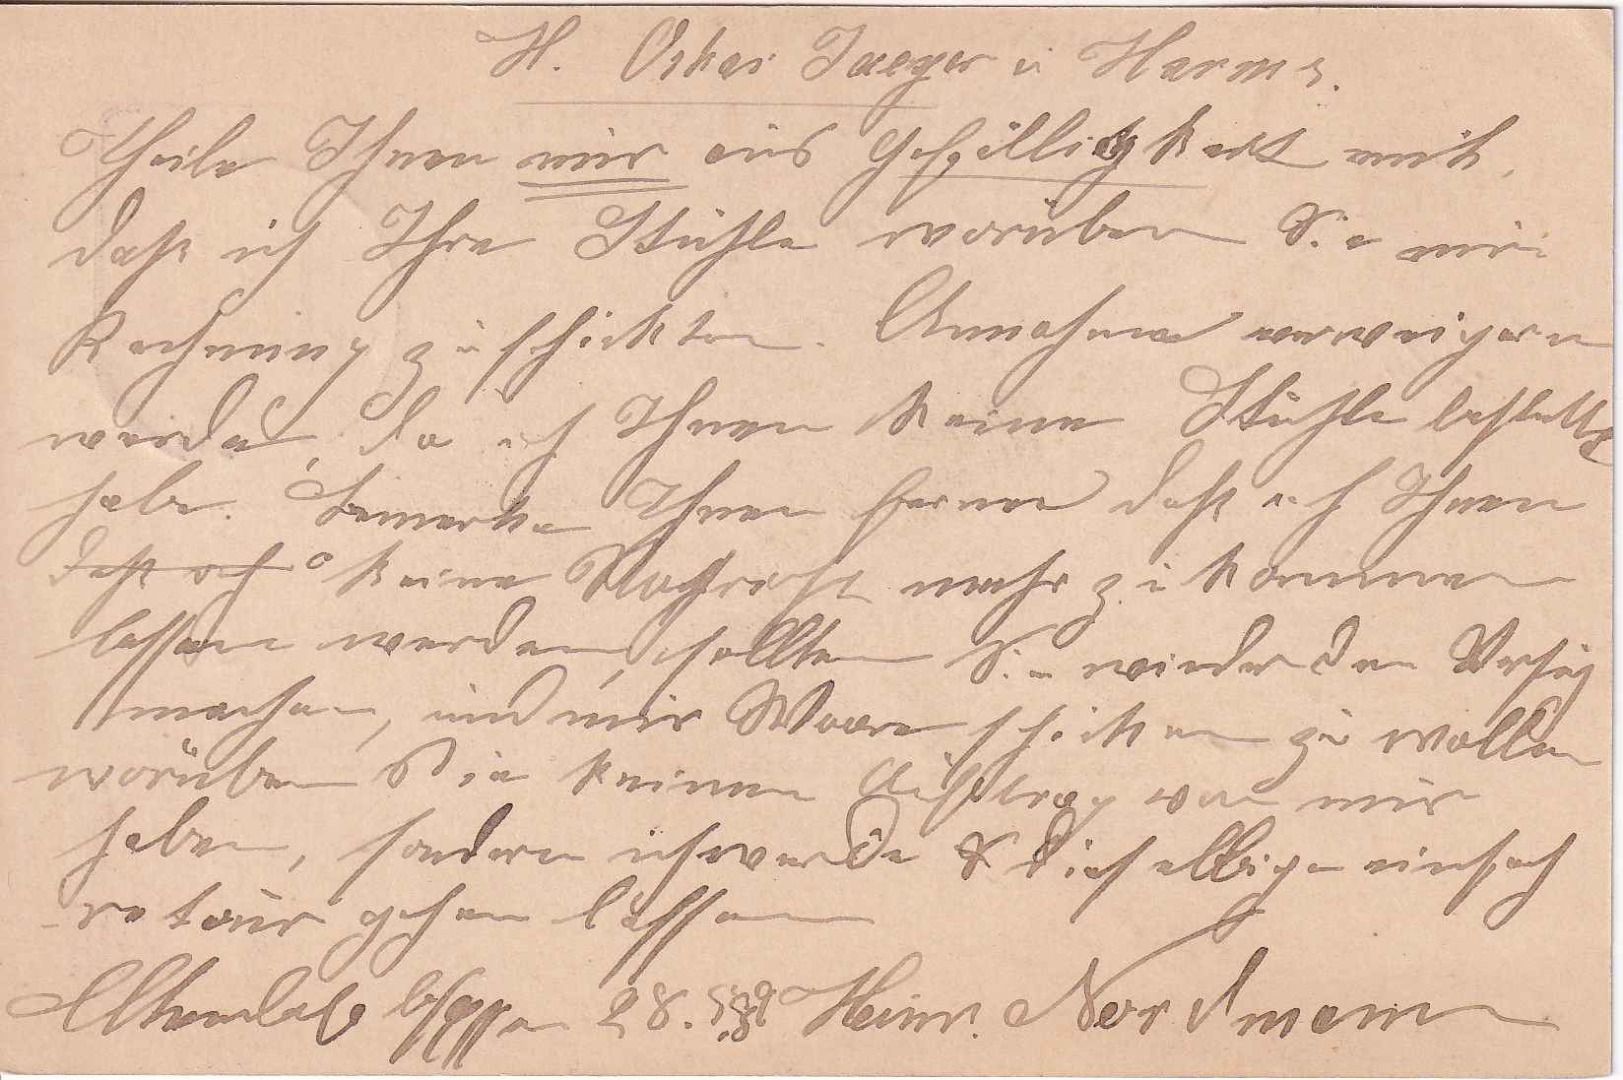 H. Oskar Jaeger u Harms.
Theile Ihnen nur aus Gefälligkeit mit,
daß ich Ihre Stühle worüber Sie mir
Rechnung zuschickten. Annahme verweigern
werde, da ich Ihnen keine Stühle bestellt
habe. Bemerke Ihnen ferner daß ich Ihnen
daß ich keine Nachricht mehr zu kommen
lassen werden, sollten Sie wieder den
machen, und mir Waare schicken zu wollen
worüber Sie keinen Auftrag von mir
haben, sondern ich werde dieselbige einfach
retour gehen lassen
28. Heinr. Nordmann